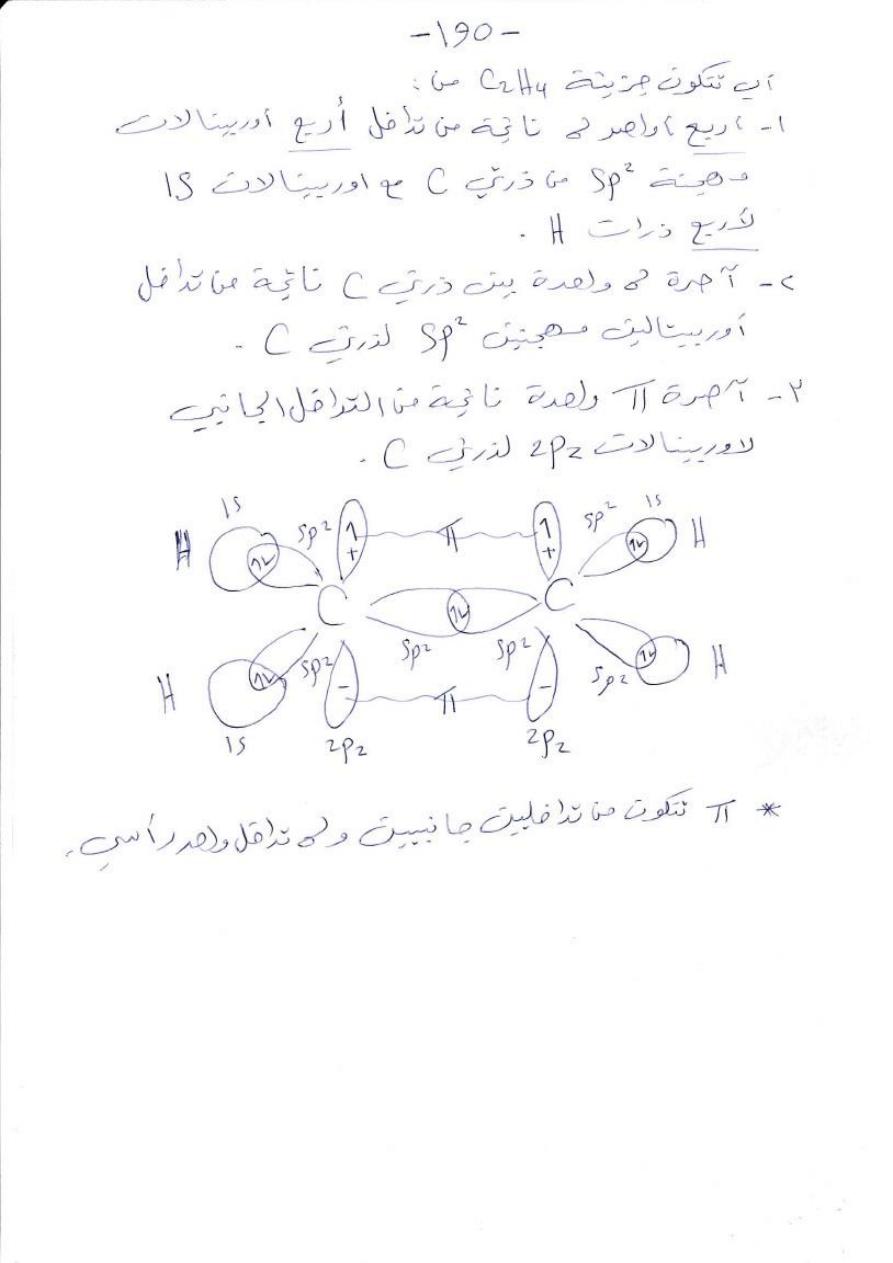 -١٩٥-
أي تتكون جزيئة C2H4 من :
١- اربع اواصر σ ناتجة من تداخل أربع اوربيتالات
مهجنة Sp² من ذرتي C مع اوربيتالات 1S
لأربع ذرات H .
٢- آصرة σ واحدة بين ذرتي C ناتجة من تداخل
أوربيتالين مهجنين Sp² لذرتي C .
٣- آصرة π واحدة ناتجة من التداخل الجانبي
لاوربيتالات 2Pz لذرتي C .
1S 1S
H Sp² + π + Sp² H
C C
Sp² Sp² Sp² Sp²
H - π - H
1S 2Pz 2Pz
* π تتكون من تداخلين جانبيين و σ تداخل واحد رأسي .